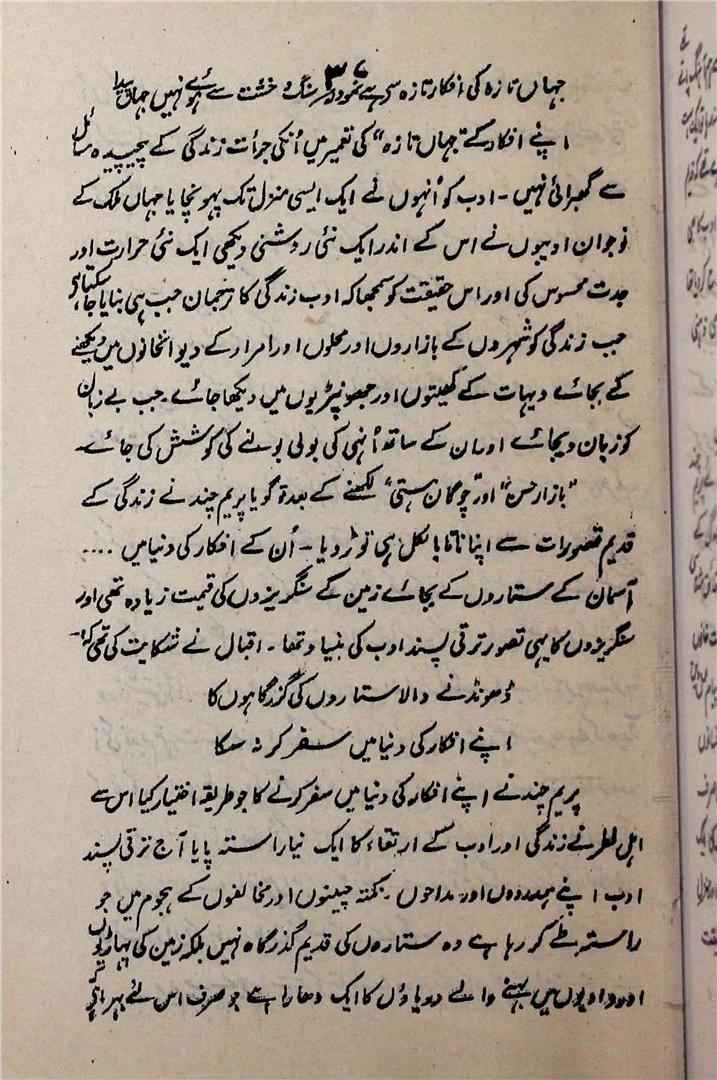 ۳۷
جہاں تازہ کی افکار تازہ سے ہے نمود کہ سنگ و خشت سے ہوئے نہیں جہاں پیدا
اپنے افکار کے "جہان تازہ" کی تعمیر میں اُنکی جرأت زندگی کے پیچیدہ مسائل
سے گھبرائی نہیں - ادب کو اُنہوں نے ایک ایسی منزل تک پہونچایا جہاں ملک کے
نوجوان ادیبوں نے اس کے اندر ایک نئی روشنی دیکھی ایک نئی حرارت اور
جدت محسوس کی اور اس حقیقت کو سمجھا کہ ادب زندگی کا ترجمان جب ہی بنایا جا سکتا ہی
جب زندگی کو شہروں کے بازاروں اور محلوں اور امراء کے دیوانخانوں میں دیکھنے
کے بجائے دیہات کے کھیتوں اور جھونپڑیوں میں دیکھا جائے۔ جب بے زبان
کو زبان دیجائے اور ان کے ساتھ اُنہی کی بولی بولنے کی کوشش کی جائے۔
"بازار حسن" اور "چوگان ہستی" لکھنے کے بعد گویا پریم چند نے زندگی کے
قدیم تصورات سے اپنا ناتا بالکل ہی توڑ دیا - اُن کے افکار کی دنیا میں ....
آسمان کے ستاروں کے بجائے زمین کے سنگریزوں کی قیمت زیادہ تھی اور
سنگریزوں کا یہی تصور ترقی پسند ادب کی بنیاد تھا - اقبال نے شکایت کی تھی کہ-
ڈھونڈنے والا ستاروں کی گزرگاہوں کا
اپنے افکار کی دنیا میں سفر کر نہ سکا
پریم چند نے اپنے افکار کی دنیا میں سفر کرنے کا جو طریقہ اختیار کیا اس سے
اہل نظر نے زندگی اور ادب کے ارتقاء کا ایک نیا راستہ پایا آج ترقی پسند
ادب اپنے ہمدردوں اور مداحوں - نکتہ چینوں اور مخالفوں کے ہجوم میں جو
راستہ طے کر رہا ہے وہ ستاروں کی قدیم گذرگاہ نہیں بلکہ زمین کی پہاڑیوں
اور وادیوں میں بہنے والے دریاؤں کا ایک دھارا ہے جو صرف اس لئے